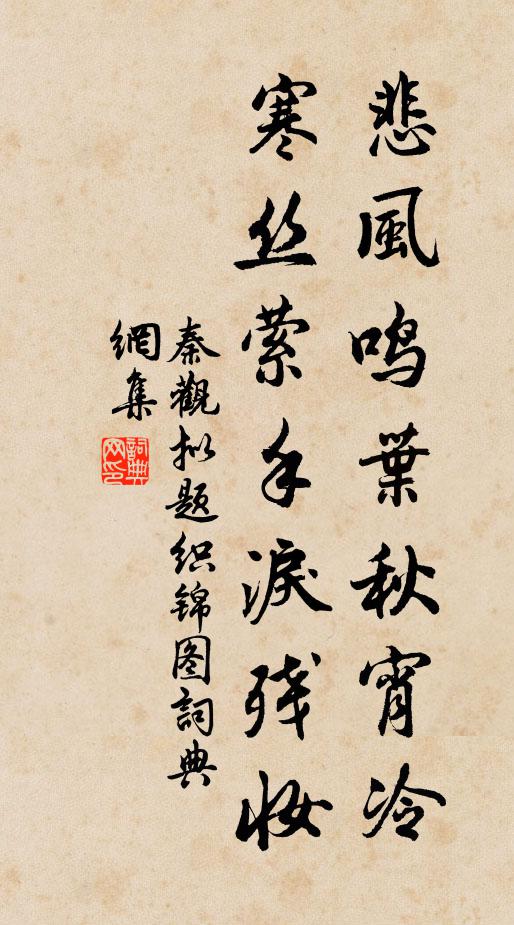 悲風鸣葉秋宵冷
寒丝萦手淚残妆
秦觀拟题织锦图詞典
網集
詞典
网印